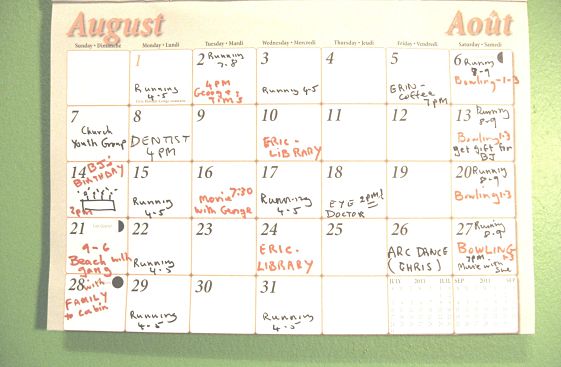 August Août
Sunday • Dimanche Monday • Lundi Tuesday • Mardi Wednesday • Mercredi Thursday • Jeudi Friday • Vendredi Saturday • Samedi
1
Running
4-5
2 Running
7-8
4PM
George,
Tim's
3
Running 4-5
4
5
ERIN -
Coffee
7PM
6 Running
8-9
Bowling 1-3
7
Church
Youth Group
8
DENTIST
4PM
9
10
ERIC -
LIBRARY
11
12
13 Running
8-9
Bowling 1-3
get gift for
BJ
14 BJ's
BIRTHDAY
2pm
15
Running
4-5
16
Movie 7:30
with George
17
Running
4-5
18
EYE 2PM!
DOCTOR
19
20 Running
8-9
Bowling 1-3
21
9-6
Beach with
gang
22
Running
4-5
23
24
ERIC -
LIBRARY
25
26
ARC DANCE
(CHRIS)
27 Running
8-9
BOWLING
1-3
7PM -
Movie with
Sue
28 with
FAMILY
to cabin
29
Running
4-5
30
31
Running
4-5
JULY 2011
SEP 2011